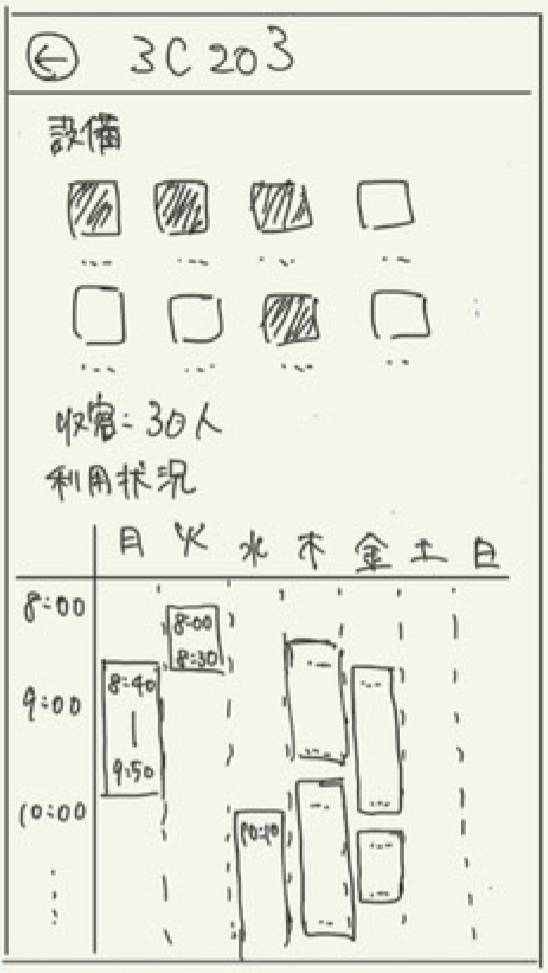 ← 3C203
設備
... ... ... ...
... ... ... ...
収容: 30人
利用状況
月 火 水 木 金 土 日
8:00
8:00
8:30
8:40
|
9:50
9:00
10:00
10:10